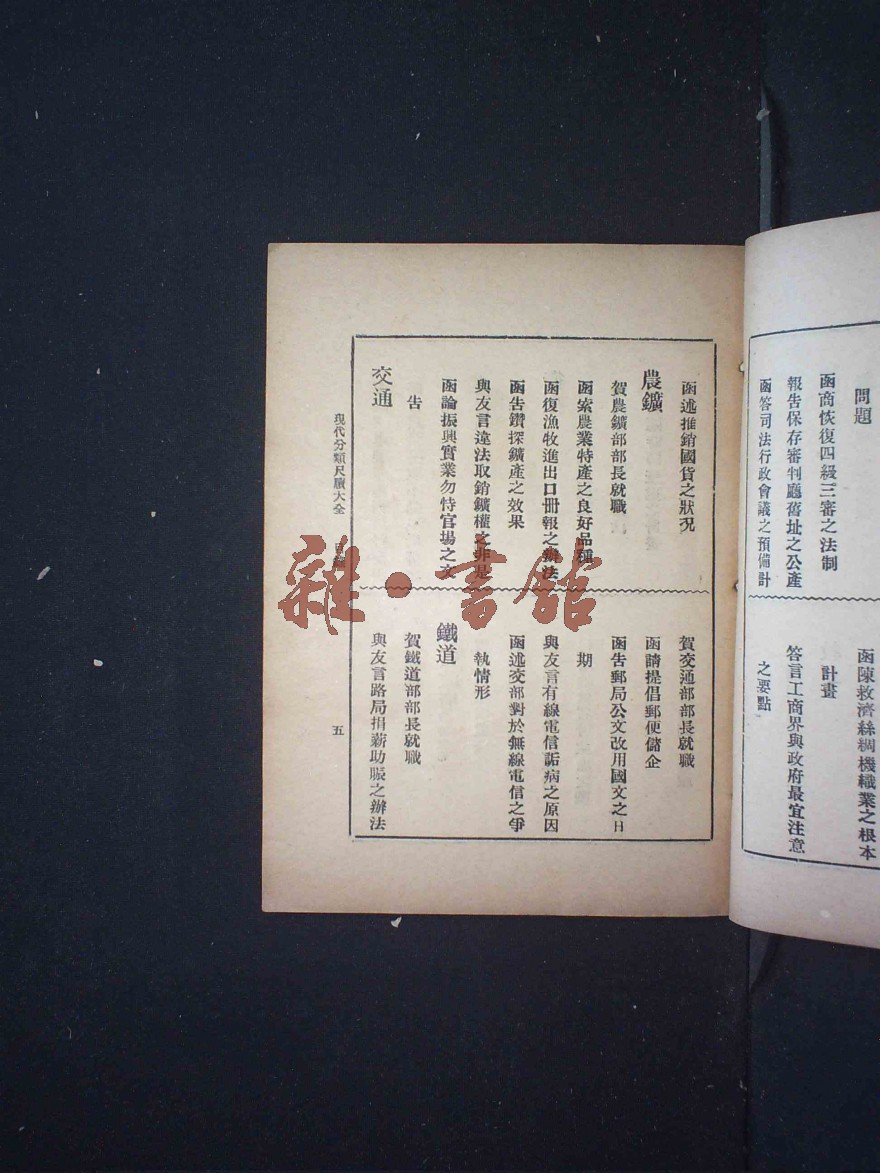 問題
函商恢復四級三審之法制
報告保存審判廳舊址之公產
函答司法行政會議之預備計
函陳救濟絲綢機織業之根本
計畫
答言工商界與政府最宜注意
之要點
函述推銷國貨之狀況
農鑛
賀農鑛部部長就職
函索農業特產之良好品種
函復漁牧進出口冊報之辦法
函告鑽探鑛產之效果
與友言違法取銷鑛權之非是
函論振興實業勿恃官場之文
告
交通
賀交通部部長就職
函請提倡郵便儲企
函告郵局公文改用國文之日
期
與友言有線電信詬病之原因
函述交部對於無線電信之爭
執情形
鐵道
賀鐵道部部長就職
與友言路局捐薪助賑之辦法
現代分類尺牘大全 目錄
五
雜·書館